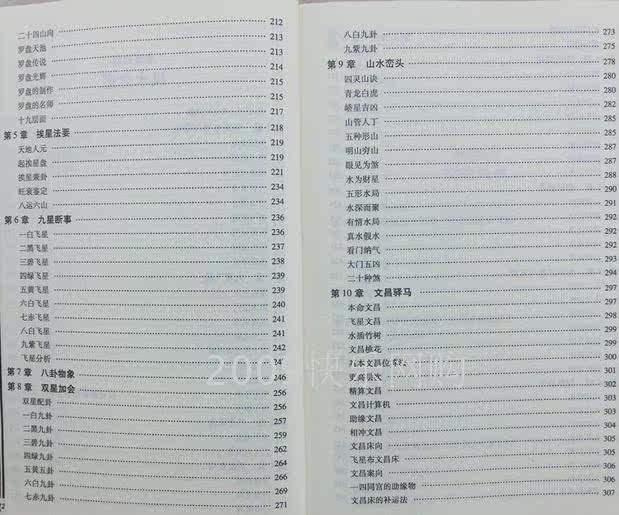 二十四山向 212
罗盘天池 213
罗盘传说 213
罗盘光辉 214
罗盘的制作 215
罗盘的名师 215
十九层面 217
第5章 挨星法要 218
天地人元 219
起挨星盘 219
挨星兼卦 221
旺衰鉴定 234
八运六山 234
第6章 九星断事 236
一白飞星 236
二黑飞星 237
三碧飞星 238
四绿飞星 239
五黄飞星 239
六白飞星 240
七赤飞星 240
八白飞星 241
九紫飞星 242
飞星分析 242
第7章 八卦物象 246
第8章 双星加会 256
双星配卦 256
一白九卦 257
二黑九卦 259
三碧九卦 262
四绿九卦 264
五黄五卦 266
六白九卦 269
七赤九卦 271
2
八白九卦 273
九紫九卦 275
第9章 山水峦头 278
四灵山诀 280
青龙白虎 280
峤星吉凶 282
山管人丁 285
五种形山 285
明山穷山 287
眼见为煞 287
水为财星 288
五形水局 290
水深而聚 291
有情水局 292
真水假水 292
看门纳气 292
大门五凶 293
二十种煞 294
第10章 文昌驿马 297
本命文昌 297
飞星文昌 298
水插竹树 299
文昌桃花 300
文昌位 300
更高层次 301
精算文昌 302
文昌计算机 302
助缘文昌 303
相冲文昌 304
文昌床向 305
飞星布文昌床 305
文昌案向 306
一四同宫的助缘物 306
文昌床的补运法 307